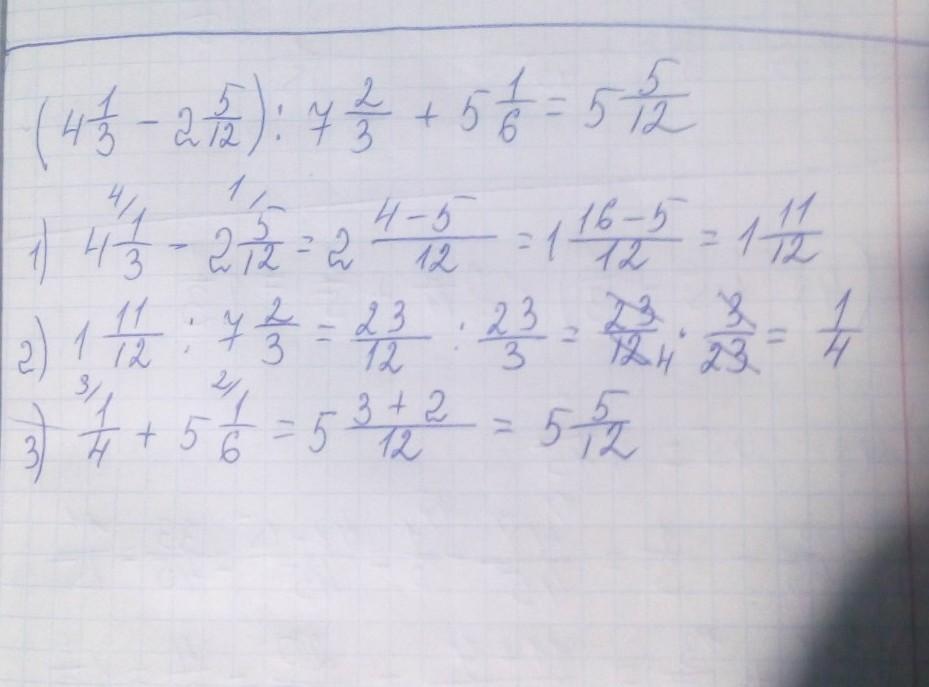 (4 1/3 - 2 5/12) : 7 2/3 + 5 1/6 = 5 5/12
1) 4 4/ 1/3 - 2 1/ 5/12 = 2 4-5/12 = 1 16-5/12 = 1 11/12
2) 1 11/12 : 7 2/3 = 23/12 : 23/3 = 23/12 4 · 3/23 = 1/4
3) 3/ 1/4 + 5 2/ 1/6 = 5 3+2/12 = 5 5/12